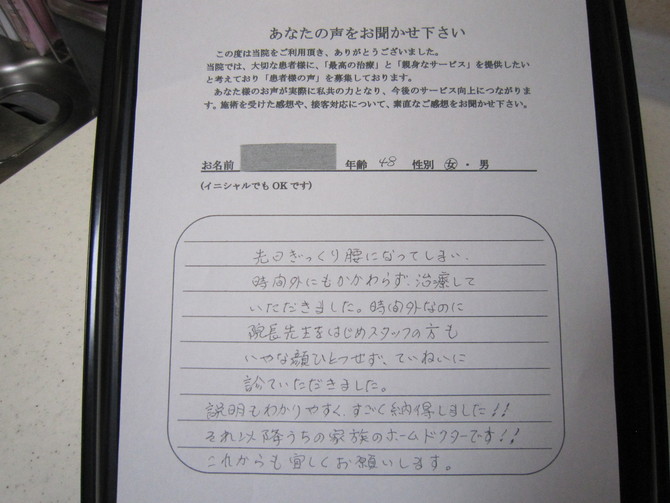 あなたの声をお聞かせ下さい
この度は当院をご利用頂き、ありがとうございました。
当院では、大切な患者様に、「最高の治療」と「親身なサービス」を提供したい
と考えており「患者様の声」を募集しております。
あなた様のお声が実際に私共の力となり、今後のサービス向上につながりま
す。施術を受けた感想や、接客対応について、素直なご感想をお聞かせ下さい。
お名前 年齢 48 性別 女・男
(イニシャルでもOKです)
先日ぎっくり腰になってしまい、
時間外にもかかわらず、治療して
いただきました。時間外なのに
院長先生をはじめスタッフの方も
いやな顔ひとつせず、ていねいに
診ていただきました。
説明もわかりやすく、すごく納得しました!!
それ以降うちの家族のホームドクターです!!
これからも宜しくお願いします。